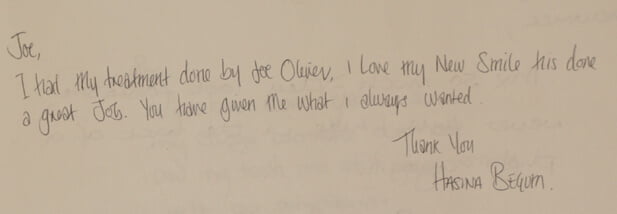 Joe,
I had my treatment done by Joe Oliver, I Love my New Smile his done
a great Job. You have given me what i always wanted.
Thank You
HASINA BEGUM.